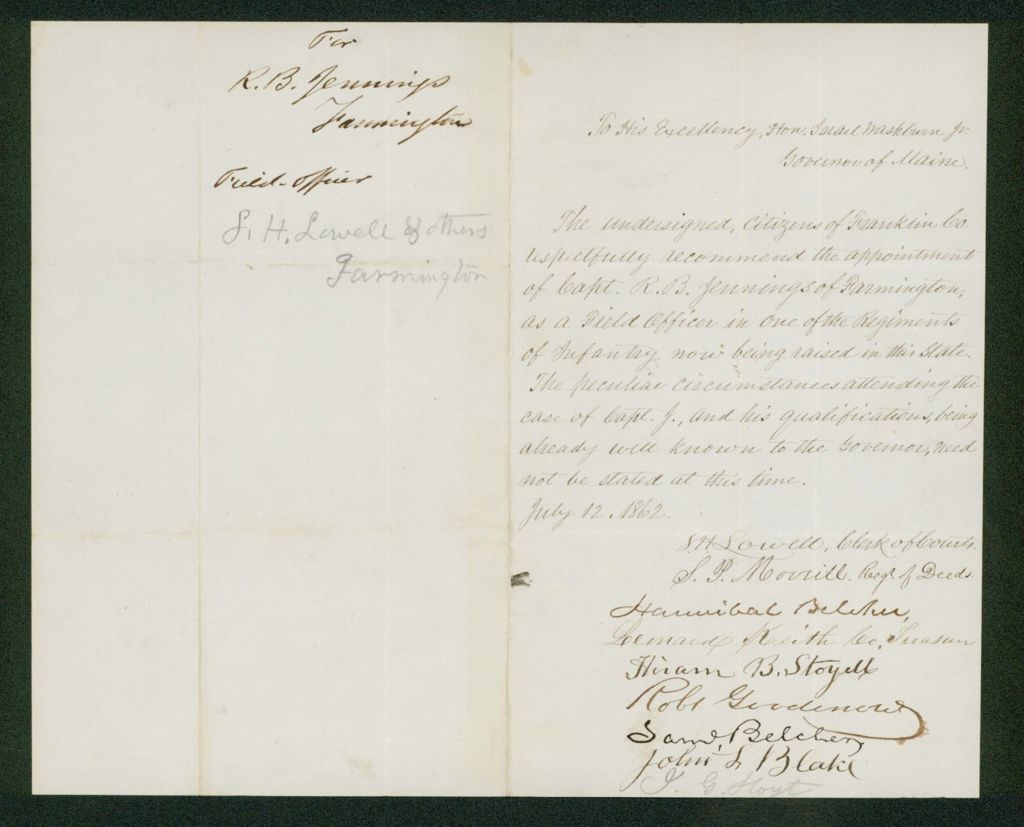 For
R. B. Jennings
Farmington
Field-officer
S. H. Lowell & others
Farmington
To His Excellency, Hon. Israel Washburn Jr.
Governor of Maine.
The undersigned, Citizens of Franklin Co.
respectfully recommend the appointment
of Capt. R. B. Jennings of Farmington,
as a Field Officer in one of the Regiments
of Infantry now being raised in this State.
The peculiar circumstances attending the
case of Capt. J., and his qualifications, being
already well known to the Governor, need
not be stated at this time.
July 12. 1862.
S. H. Lowell, Clerk of Courts.
S. P. Morrill. Regr. of Deeds.
Hannibal Belcher,
Leonard Keith Co. Treasurer
Hiram B. Stoyell
Robt Goodenow
Saml. Belcher,
John L Blake
J. G. Hoyt